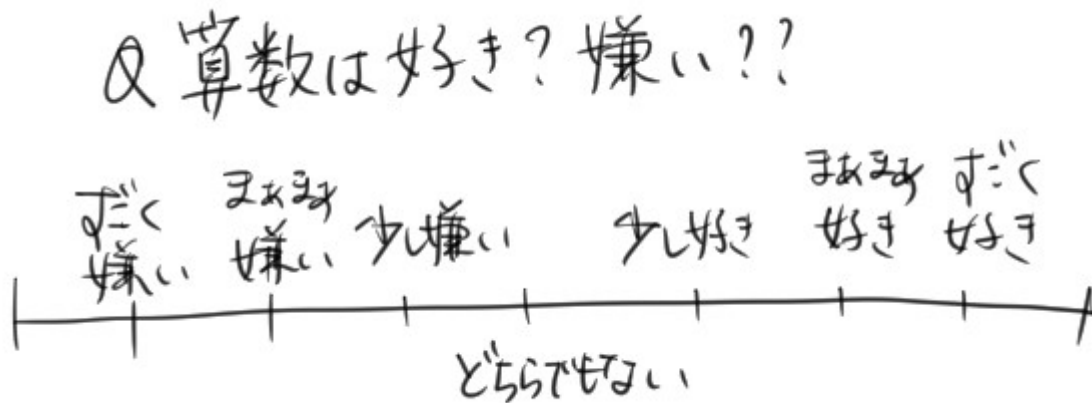 Q 算数は好き？嫌い？？
すごく嫌い
まあまあ嫌い
少し嫌い
少し好き
まあまあ好き
すごく好き
どちらでもない